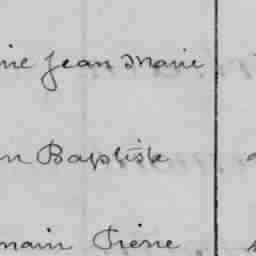 rie Jean Marie
n Baptiste
main Pierre